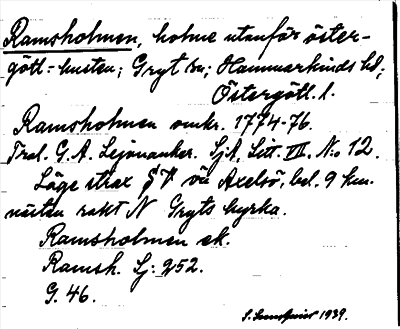 Ramsholmen, holme utanför öster-
götl.-kusten; Gryt sn; Hammarkinds hd;
Östergötl. l.
Ramsholmen omkr. 1774-76.
Tral. G. A. Lejonanker. Sj.A. Litt. VII. No 12.
Läge strax SV om Axelsö, bel. 9 km.
nästen rakt N Gryts kyrka.
Ramsholmen ek.
Ramsh. Sj: 252.
G. 46.
1939.